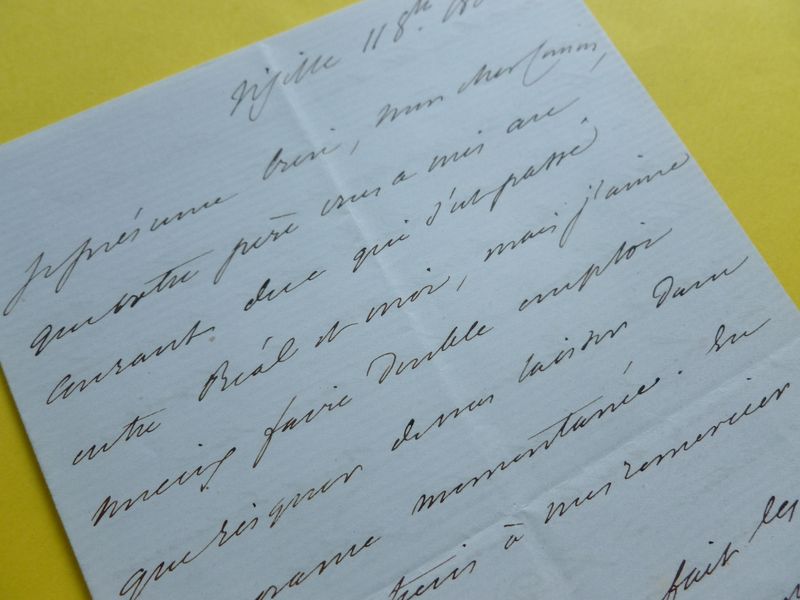 Vizille 11 8bre
Je présume bien, mon cher
que votre père vous a mis au
courant de ce qui s'est passé
entre Réal et moi, mais j'aime
mieux faire double emploi
que risquer de vous laisser dans
momentanée. En
à vous remercier
fait les